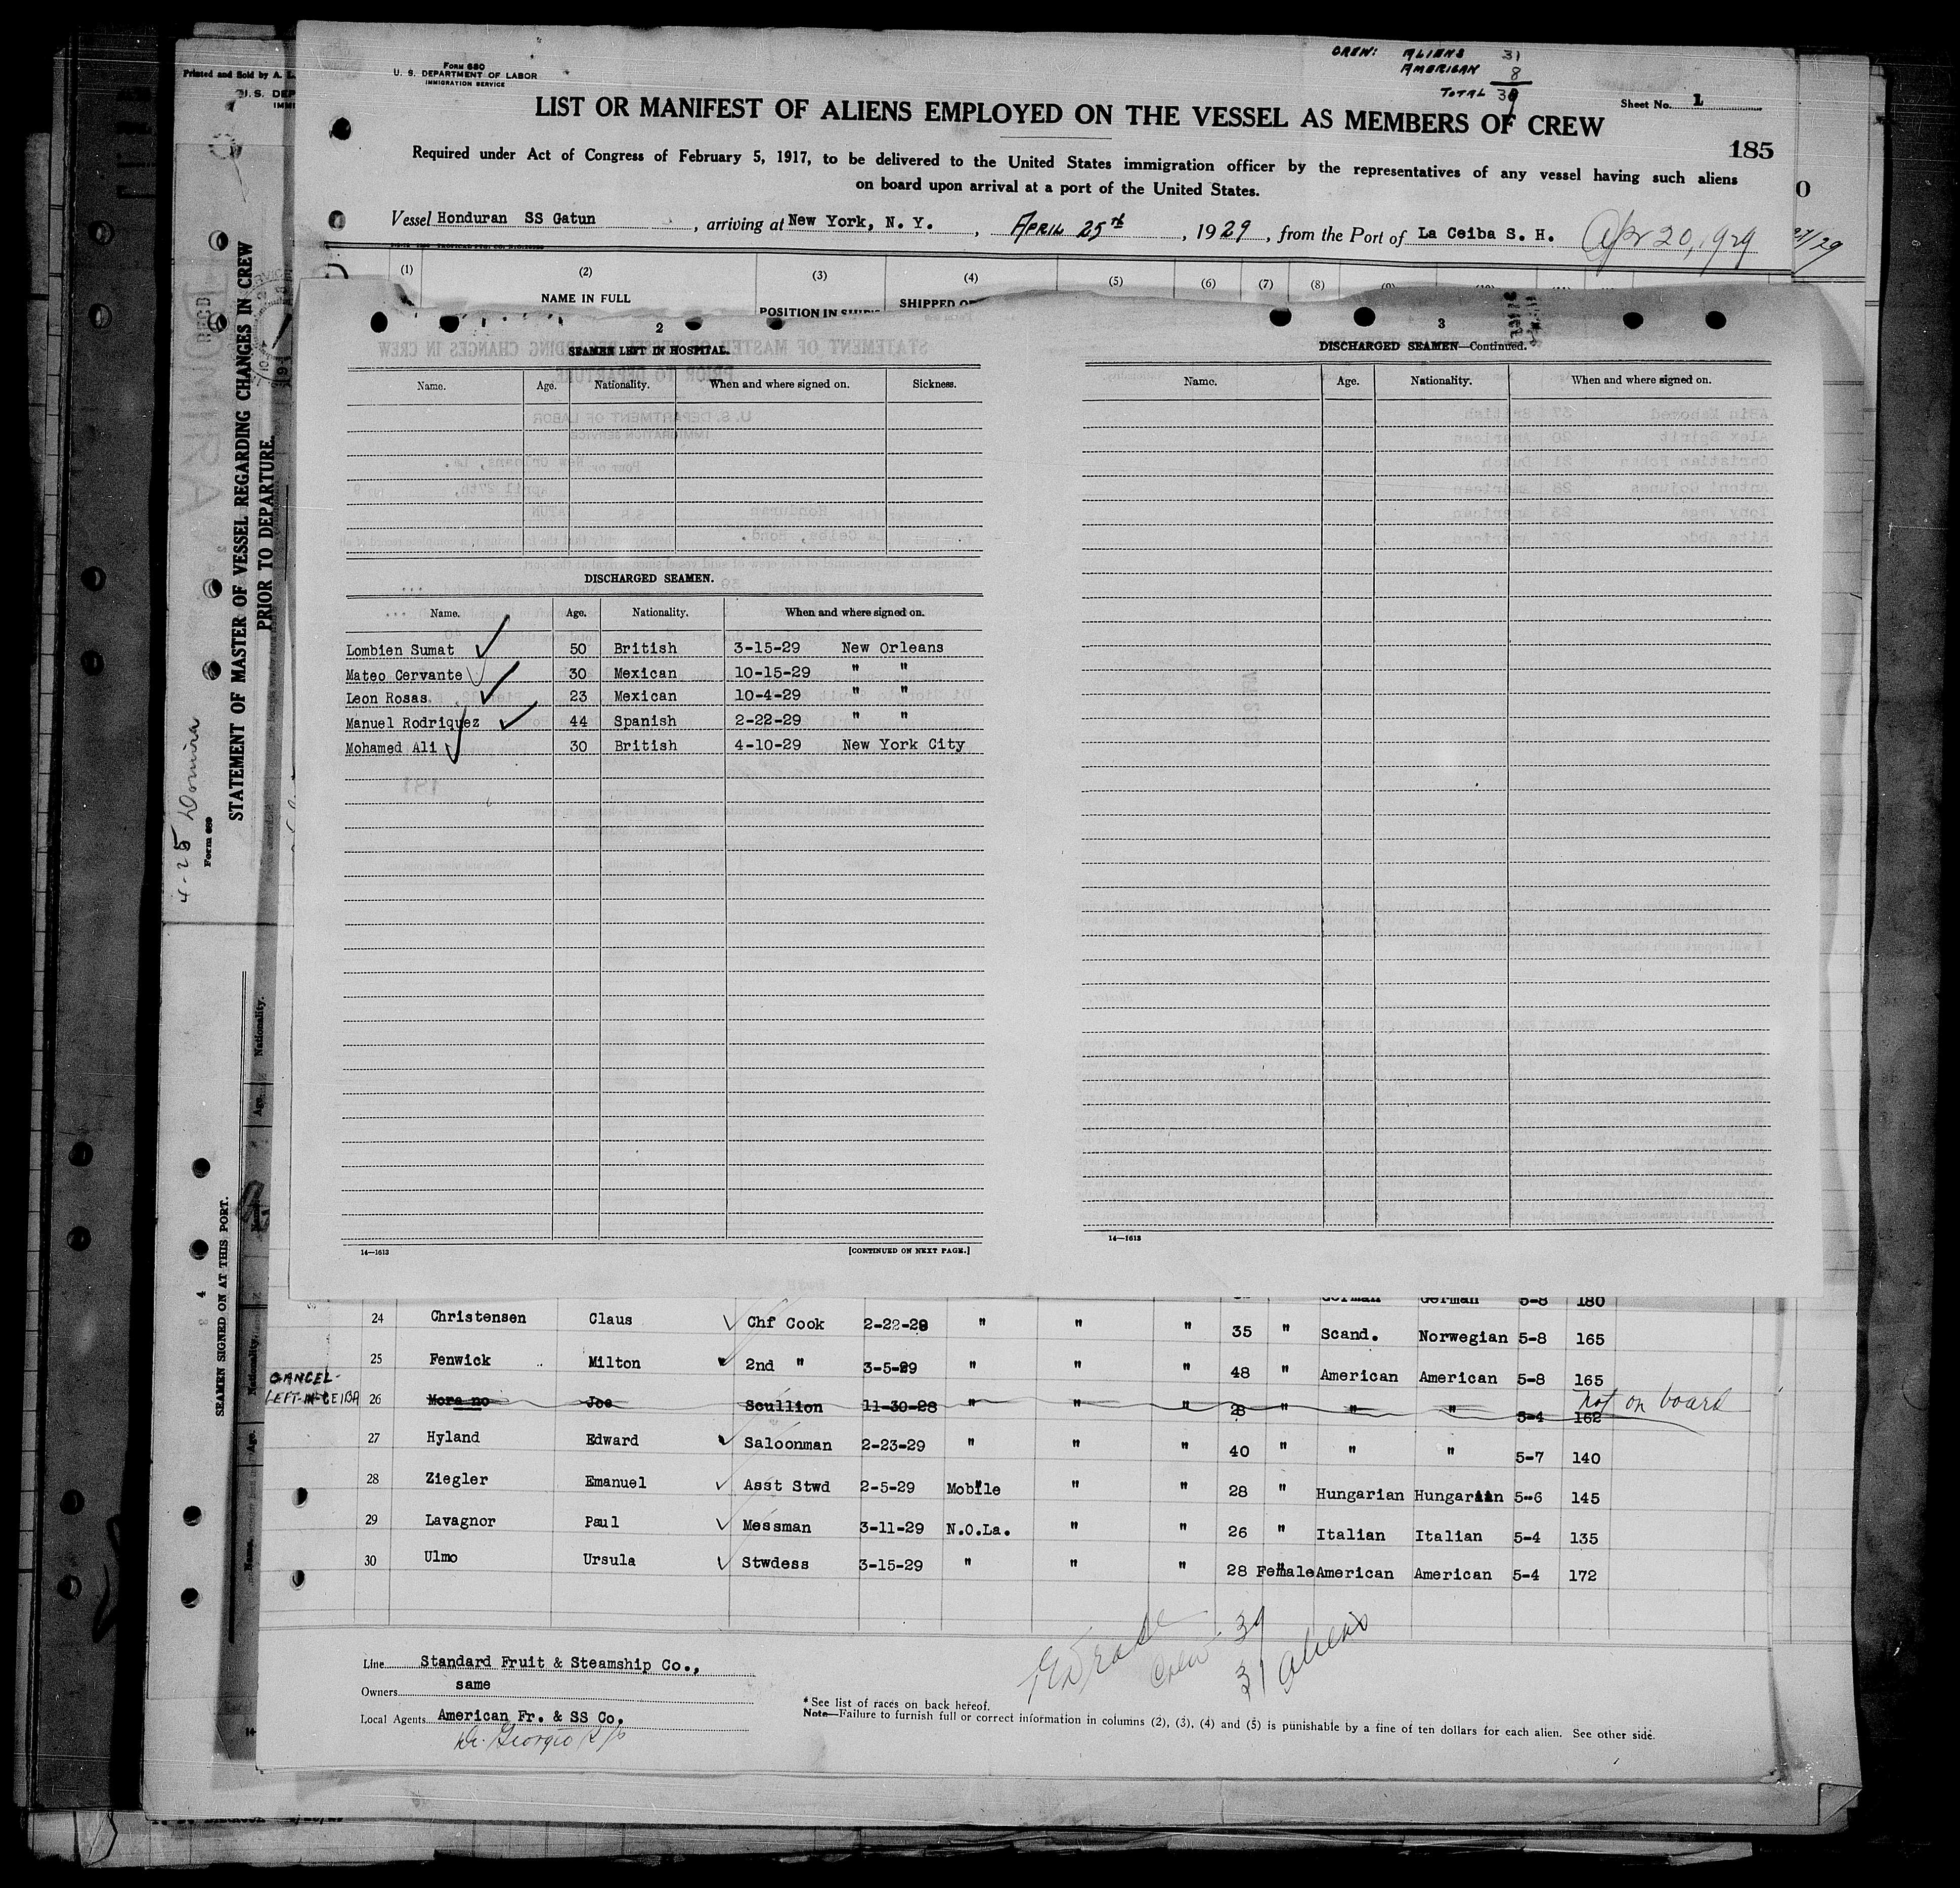 CREW: ALIENS 31
AMERICAN 8
TOTAL 39
Form 680
U. S. DEPARTMENT OF LABOR
IMMIGRATION SERVICE
Sheet No. 1
LIST OR MANIFEST OF ALIENS EMPLOYED ON THE VESSEL AS MEMBERS OF CREW
185
Required under Act of Congress of February 5, 1917, to be delivered to the United States immigration officer by the representatives of any vessel having such aliens
on board upon arrival at a port of the United States.
Vessel Honduran SS Gatun, arriving at New York, N. Y., April 25th, 1929, from the Port of La Ceiba S. H. Apr 20, 1929
(1) (2) (3) (4) (5) (6) (7) (8)
NAME IN FULL
POSITION IN SHIP'S
SHIPPED OR
2
SEAMEN LEFT IN HOSPITAL.
Name. Age. Nationality. When and where signed on. Sickness.
DISCHARGED SEAMEN.
Name. Age. Nationality. When and where signed on.
Lombien Sumat 50 British 3-15-29 New Orleans
Mateo Cervante 30 Mexican 10-15-29 " "
Leon Rosas 23 Mexican 10-4-29 " "
Manuel Rodriquez 44 Spanish 2-22-29 " "
Mohamed Ali 30 British 4-10-29 New York City
14—1613
[CONTINUED ON NEXT PAGE.]
3
DISCHARGED SEAMEN—Continued.
Name. Age. Nationality. When and where signed on.
14—1613
German German 5-8 180
24 Christensen Claus Chf Cook 2-22-29 " " " 35 " Scand. Norwegian 5-8 165
25 Fenwick Milton 2nd " 3-5-29 " " " 48 " American American 5-8 165
CANCEL-
LEFT-IN-CEIBA 26 Mora no Joe Scullion 11-30-28 " " " 28 " " " 5-4 162 not on board
27 Hyland Edward Saloonman 2-23-29 " " " 40 " " " 5-7 140
28 Ziegler Emanuel Asst Stwd 2-5-29 Mobile " " 28 " Hungarian Hungarian 5-6 145
29 Lavagnor Paul Messman 3-11-29 N.O.La. " " 26 " Italian Italian 5-4 135
30 Ulmo Ursula Stwdess 3-15-29 " " " 28 Female American American 5-4 172
Crew 39
31 aliens
Line Standard Fruit & Steamship Co.,
Owners same
Local Agents American Fr. & SS Co.
* See list of races on back hereof.
Note—Failure to furnish full or correct information in columns (2), (3), (4) and (5) is punishable by a fine of ten dollars for each alien. See other side.
Printed and Sold by A. L.
U.S. DEP
IMMI
STATEMENT OF MASTER OF VESSEL REGARDING CHANGES IN CREW
PRIOR TO DEPARTURE.
REC'D
4-25
Form 689
4
SEAMEN SIGNED ON AT THIS PORT.
Name. Age. Nationality.
Name. Age. Nationality.